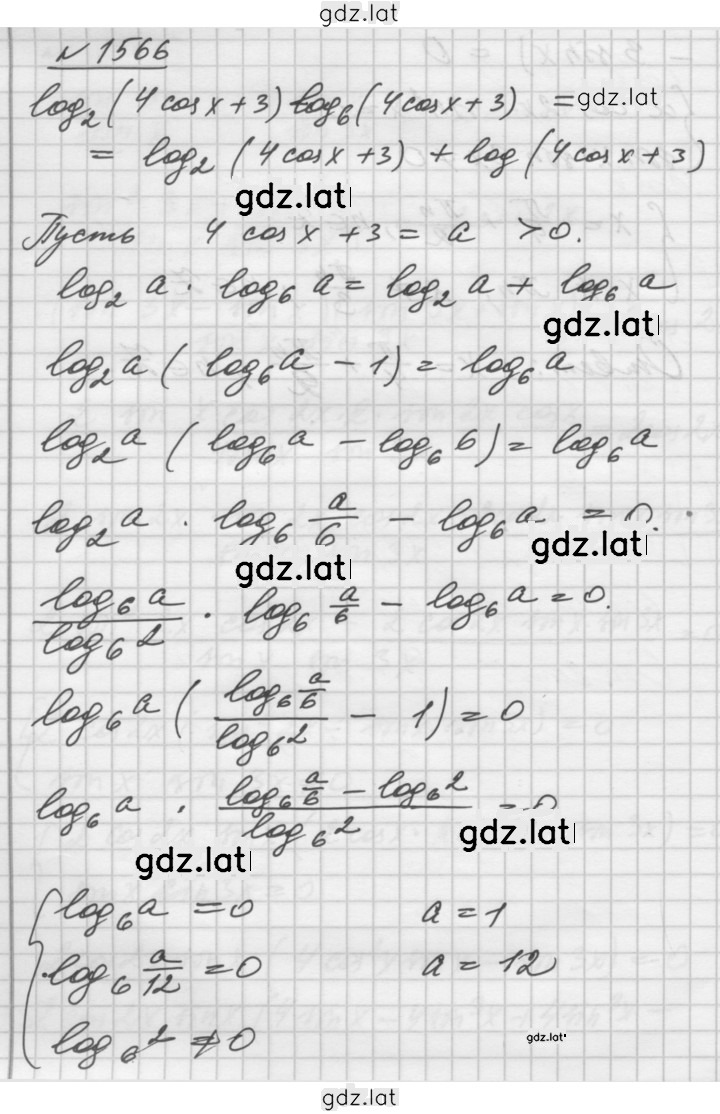 gdz.lat
№ 1566
log₂(4cosx+3) log₆(4cosx+3) = gdz.lat
= log₂(4cosx+3) + log(4cosx+3)
gdz.lat
Пусть 4cosx+3 = a >0.
log₂a · log₆a = log₂a + log₆a
gdz.lat
log₂a (log₆a − 1) = log₆a
log₂a (log₆a − log₆6) = log₆a
log₂a · log₆ a/6 − log₆a = 0.
gdz.lat
gdz.lat
log₆a / log₆2 · log₆ a/6 − log₆a = 0.
log₆a ( log₆ a/6 / log₆2 − 1) = 0
log₆a · (log₆ a/6 − log₆2) / log₆2 = 0
gdz.lat
gdz.lat
{ log₆a = 0 a = 1
log₆ a/12 = 0 a = 12
log₆2 ≠ 0
gdz.lat
gdz.lat